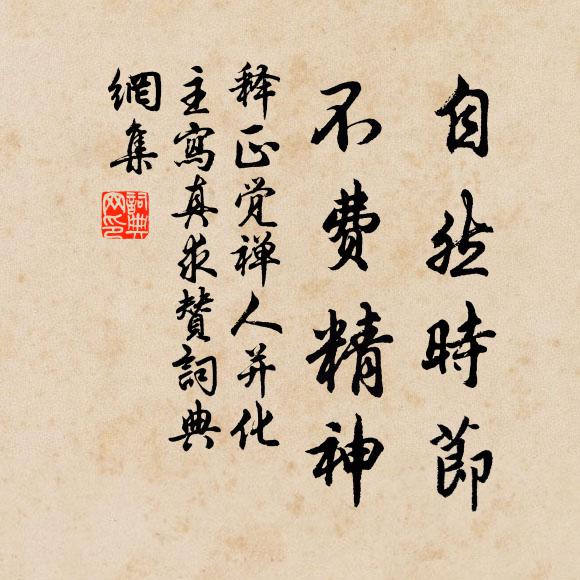 自然時節
不費精神
释正觉禅人并化
主寫真求贊詞典
網集
詞典網印